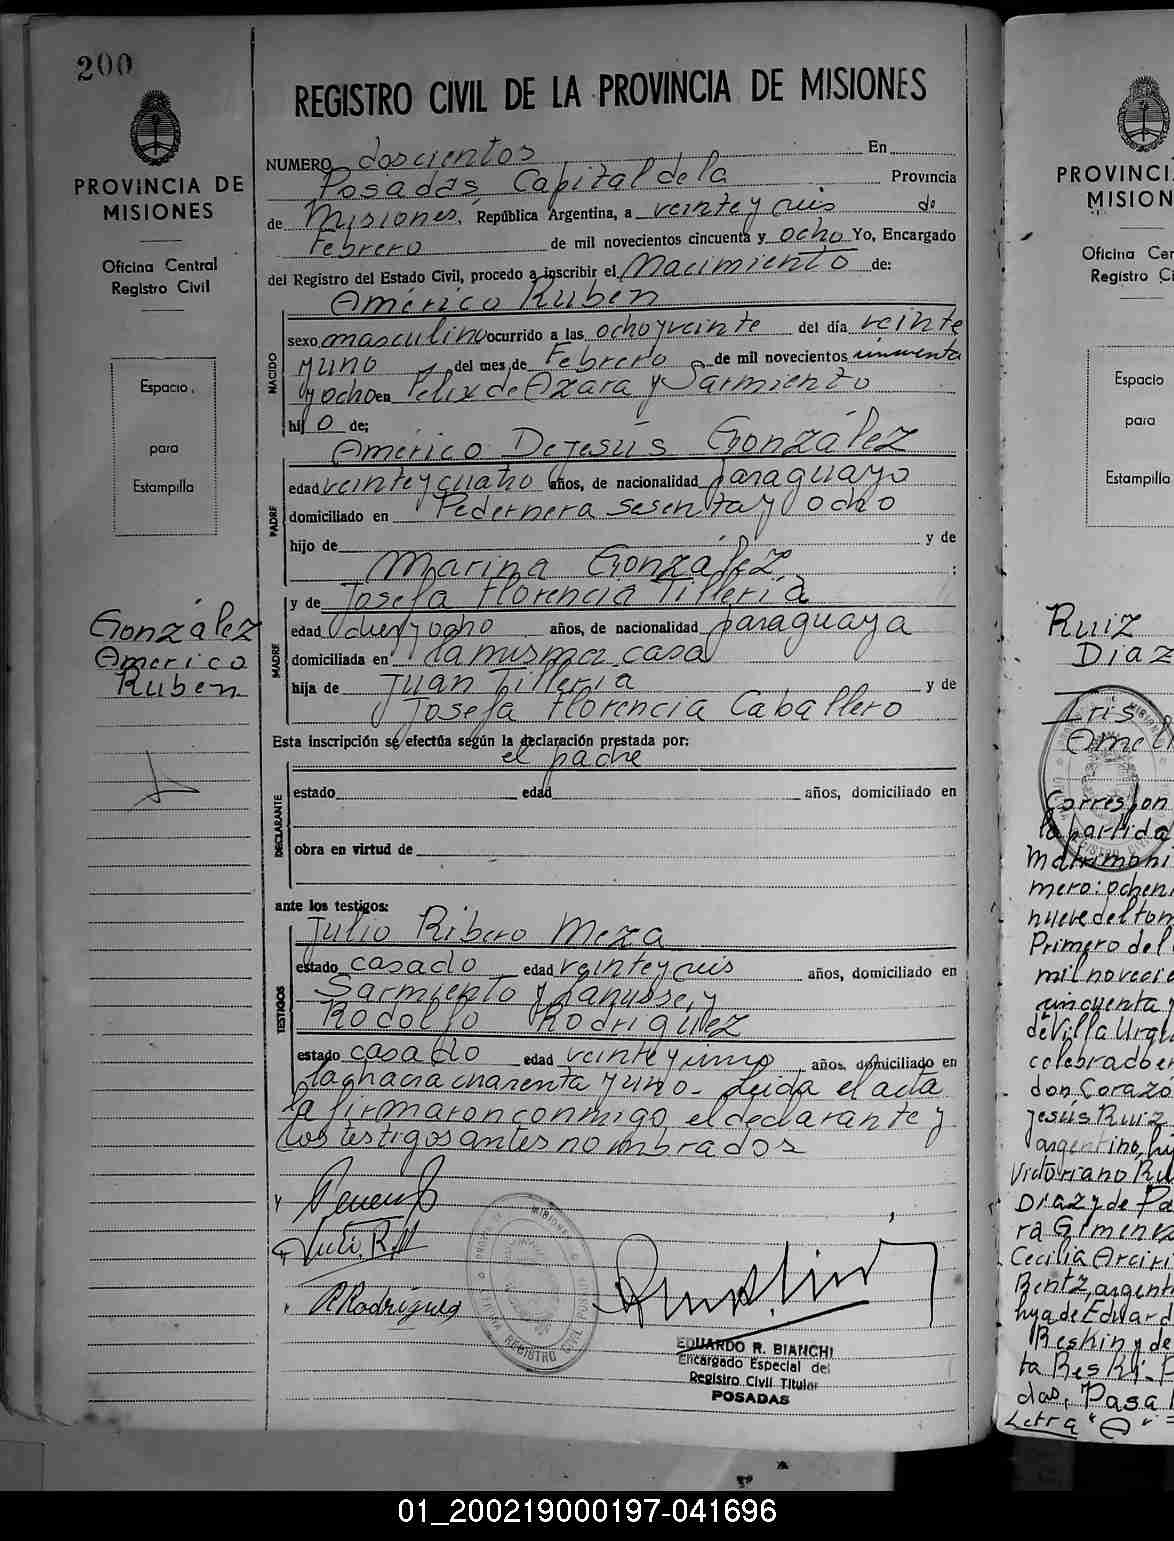 200
PROVINCIA DE
MISIONES
Oficina Central
Registro Civil
Espacio
para
Estampilla
González
Americo
Ruben
REGISTRO CIVIL DE LA PROVINCIA DE MISIONES
NUMERO doscientos En
Posadas Capital de la Provincia
de Misiones, República Argentina, a veinte y seis de
Febrero de mil novecientos cincuenta y ocho Yo, Encargado
del Registro del Estado Civil, procedo a inscribir el Nacimiento de:
Américo Ruben
NACIDO
sexo masculino ocurrido a las ocho y veinte del día veinte
y uno del mes de Febrero de mil novecientos cincuenta
y ocho en Felix de Azara y Sarmiento
hijo de;
Américo De Jesús González
PADRE
edad veinte y cuatro años, de nacionalidad paraguayo
domiciliado en Pedernera sesenta y ocho
hijo de y de
Marina González ;
MADRE
y de Josefa Florencia Tilleria
edad diez y ocho años, de nacionalidad paraguaya
domiciliada en la misma casa
hija de Juan Tilleria y de
Josefa Florencia Caballero
Esta inscripción se efectúa según la declaración prestada por:
el padre
DECLARANTE
estado edad años, domiciliado en
obra en virtud de
ante los testigos:
TESTIGOS
Julio Ribero Meza
estado casado edad veinte y seis años, domiciliado en
Sarmiento y Lanusse, y
Rodolfo Rodriguez
estado casado edad veinte y uno años, domiciliado en
la chacra cuarenta y uno - Leida el acta
la firmaron conmigo, el declarante y
los testigos antes nombrados
R Rodriguez
EDUARDO R. BIANCHI
Encargado Especial del
Registro Civil Titular
POSADAS
PROVINCI
MISION
Oficina Cen
Registro Ci
Espacio
para
Estampilla
Ruiz
Diaz
Iris
Ameli
Correspon
la partida
Matrimoni
mero: ochen
nueve del tom
Primero del
mil novecie
cincuenta y
de Villa Urqu
celebrado en
don Corazo
Jesús Ruiz
argentino, hij
Victoriano Ru
Diaz y de Pa
ra Gimenez
Cecilia
Bentz, argent
hija de Eduard
Reskin y de
ta Reski- P
das, Pasa
Letra "A" =
01_200219000197-041696